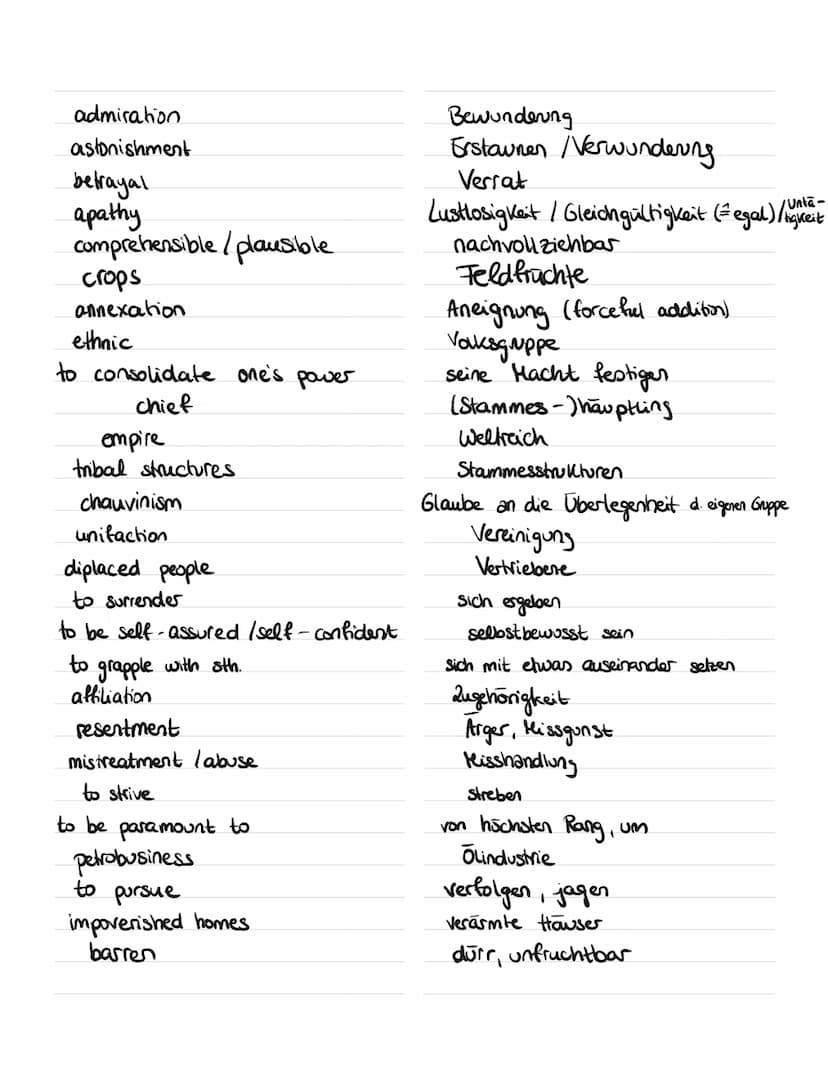 admiration Bewunderung
astonishment Erstaunen / Verwunderung
betrayal Verrat
apathy Lustlosigkeit / Gleichgültigkeit (≙ egal) / Untä-tigkeit
comprehensible / plausible nachvollziehbar
crops Feldfrüchte
annexation Aneignung (forceful addition)
ethnic Volksgruppe
to consolidate one's power seine Macht festigen
chief (Stammes-)häuptling
empire Weltreich
tribal structures Stammesstrukturen
chauvinism Glaube an die Überlegenheit d. eigenen Gruppe
unifaction Vereinigung
diplaced people Vertriebene
to surrender sich ergeben
to be self-assured / self-confident selbstbewusst sein
to grapple with sth. sich mit etwas auseinander setzen
affiliation Zugehörigkeit
resentment Ärger, Missgunst
mistreatment / abuse Misshandlung
to strive streben
to be paramount to von höchsten Rang, um
petrobusiness Ölindustrie
to pursue verfolgen, jagen
impoverished homes verärmte Häuser
barren dürr, unfruchtbar